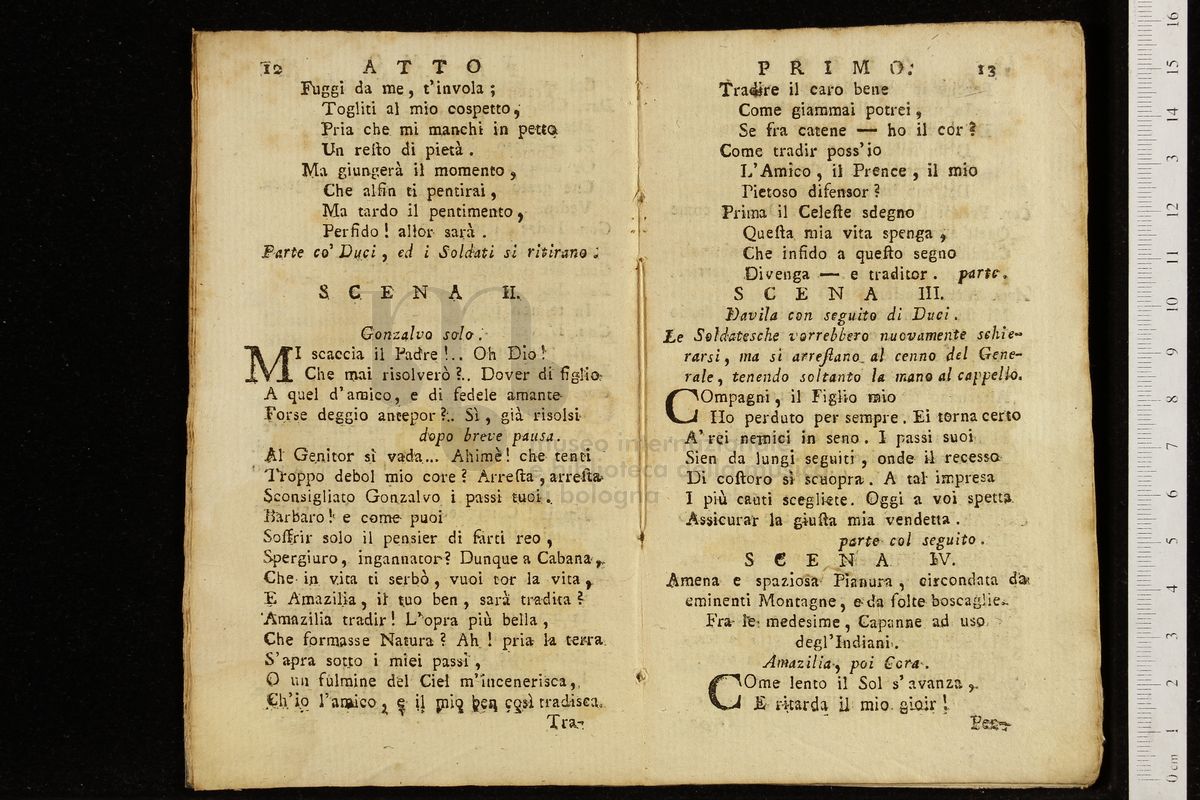 12 ATTO
Fuggi da me, t'invola;
Togliti al mio cospetto,
Pria che mi manchi in petto
Un resto di pietà.
Ma giungerà il momento,
Che alfin ti pentirai,
Ma tardo il pentimento,
Perfido! allor sarà.
Parte co' Duci, ed i Soldati si ritirano.
SCENA II.
Gonzalvo solo.
MI scaccia il Padre!.. Oh Dio!
Che mai risolverò?.. Dover di figlio
A quel d'amico, e di fedele amante
Forse deggio antepor?.. Sì, già risolsi
dopo breve pausa.
Al Genitor sì vada... Ahimè! che tenti
Troppo debol mio core? Arresta, arresta
Sconsigliato Gonzalvo i passi tuoi.
Barbaro! e come puoi
Soffrir solo il pensier di farti reo,
Spergiuro, ingannator? Dunque a Cabana,
Che in vita ti serbò, vuoi tor la vita,
E Amazilia, il tuo ben, sarà tradita?
Amazilia tradir! L'opra più bella,
Che formasse Natura? Ah! pria la terra
S'apra sotto i miei passi,
O un fulmine del Ciel m'incenerisca,
Ch'io l'amico, e il mio ben così tradisca.
Tra-
PRIMO. 13
Tradire il caro bene
Come giammai potrei,
Se fra catene — ho il cor?
Come tradir poss'io
L'Amico, il Prence, il mio
Pietoso difensor?
Prima il Celeste sdegno
Questa mia vita spenga,
Che infido a questo segno
Divenga — e traditor. parte.
SCENA III.
Davila con seguito di Duci.
Le Soldatesche vorrebbero nuovamente schie-
rarsi, ma si arrestano al cenno del Gene-
rale, tenendo soltanto la mano al cappello.
COmpagni, il Figlio mio
Ho perduto per sempre. Ei torna certo
A' rei nemici in seno. I passi suoi
Sien da lungi seguiti, onde il recesso
Di costoro si scuopra. A tal impresa
I più cauti scegliete. Oggi a voi spetta
Assicurar la giusta mia vendetta.
parte col seguito.
SCENA IV.
Amena e spaziosa Pianura, circondata da
eminenti Montagne, e da folte boscaglie.
Fra le medesime, Capanne ad uso
degl'Indiani.
Amazilia, poi Cora.
COme lento il Sol s'avanza,
E ritarda il mio gioir!
Per-